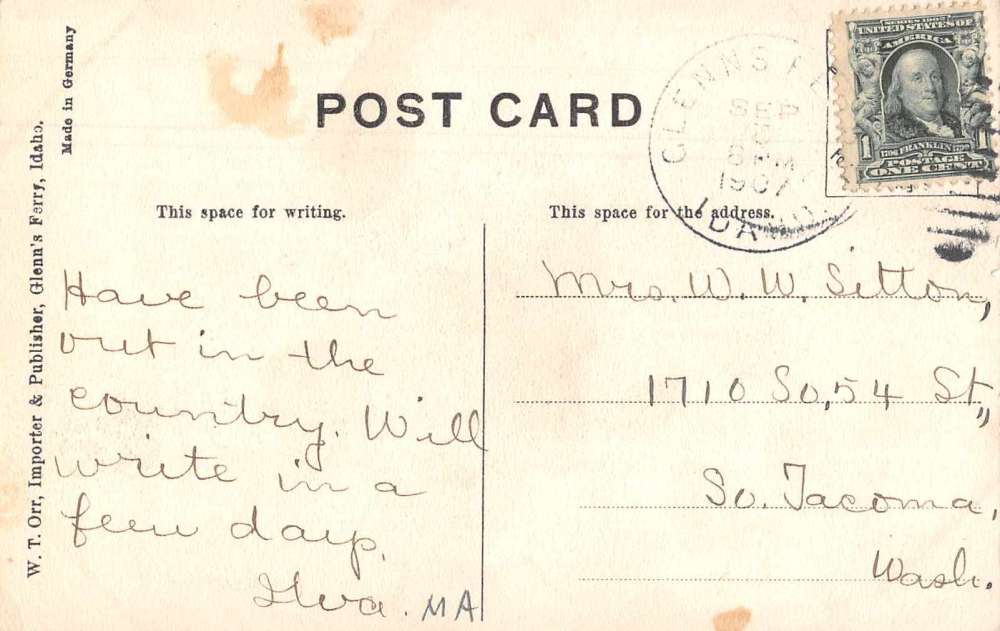 Made in Germany
W. T. Orr, Importer & Publisher, Glenn's Ferry, Idaho.
POST CARD
GLENNS FE
SEP
8 PM
1907
IDAHO
SERIES 1902
UNITED STATES OF
AMERICA
1 FRANKLIN 1
POSTAGE
ONE CENT
This space for writing.
This space for the address.
Have been
out in the
country. Will
write in a
few days.
Ilva. MA
Mrs. W. W. Sitton,
1710 So, 54 St.,
So. Tacoma,
Wash.